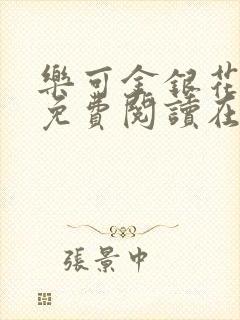 樂可金銀花
免費閱讀在
張景中